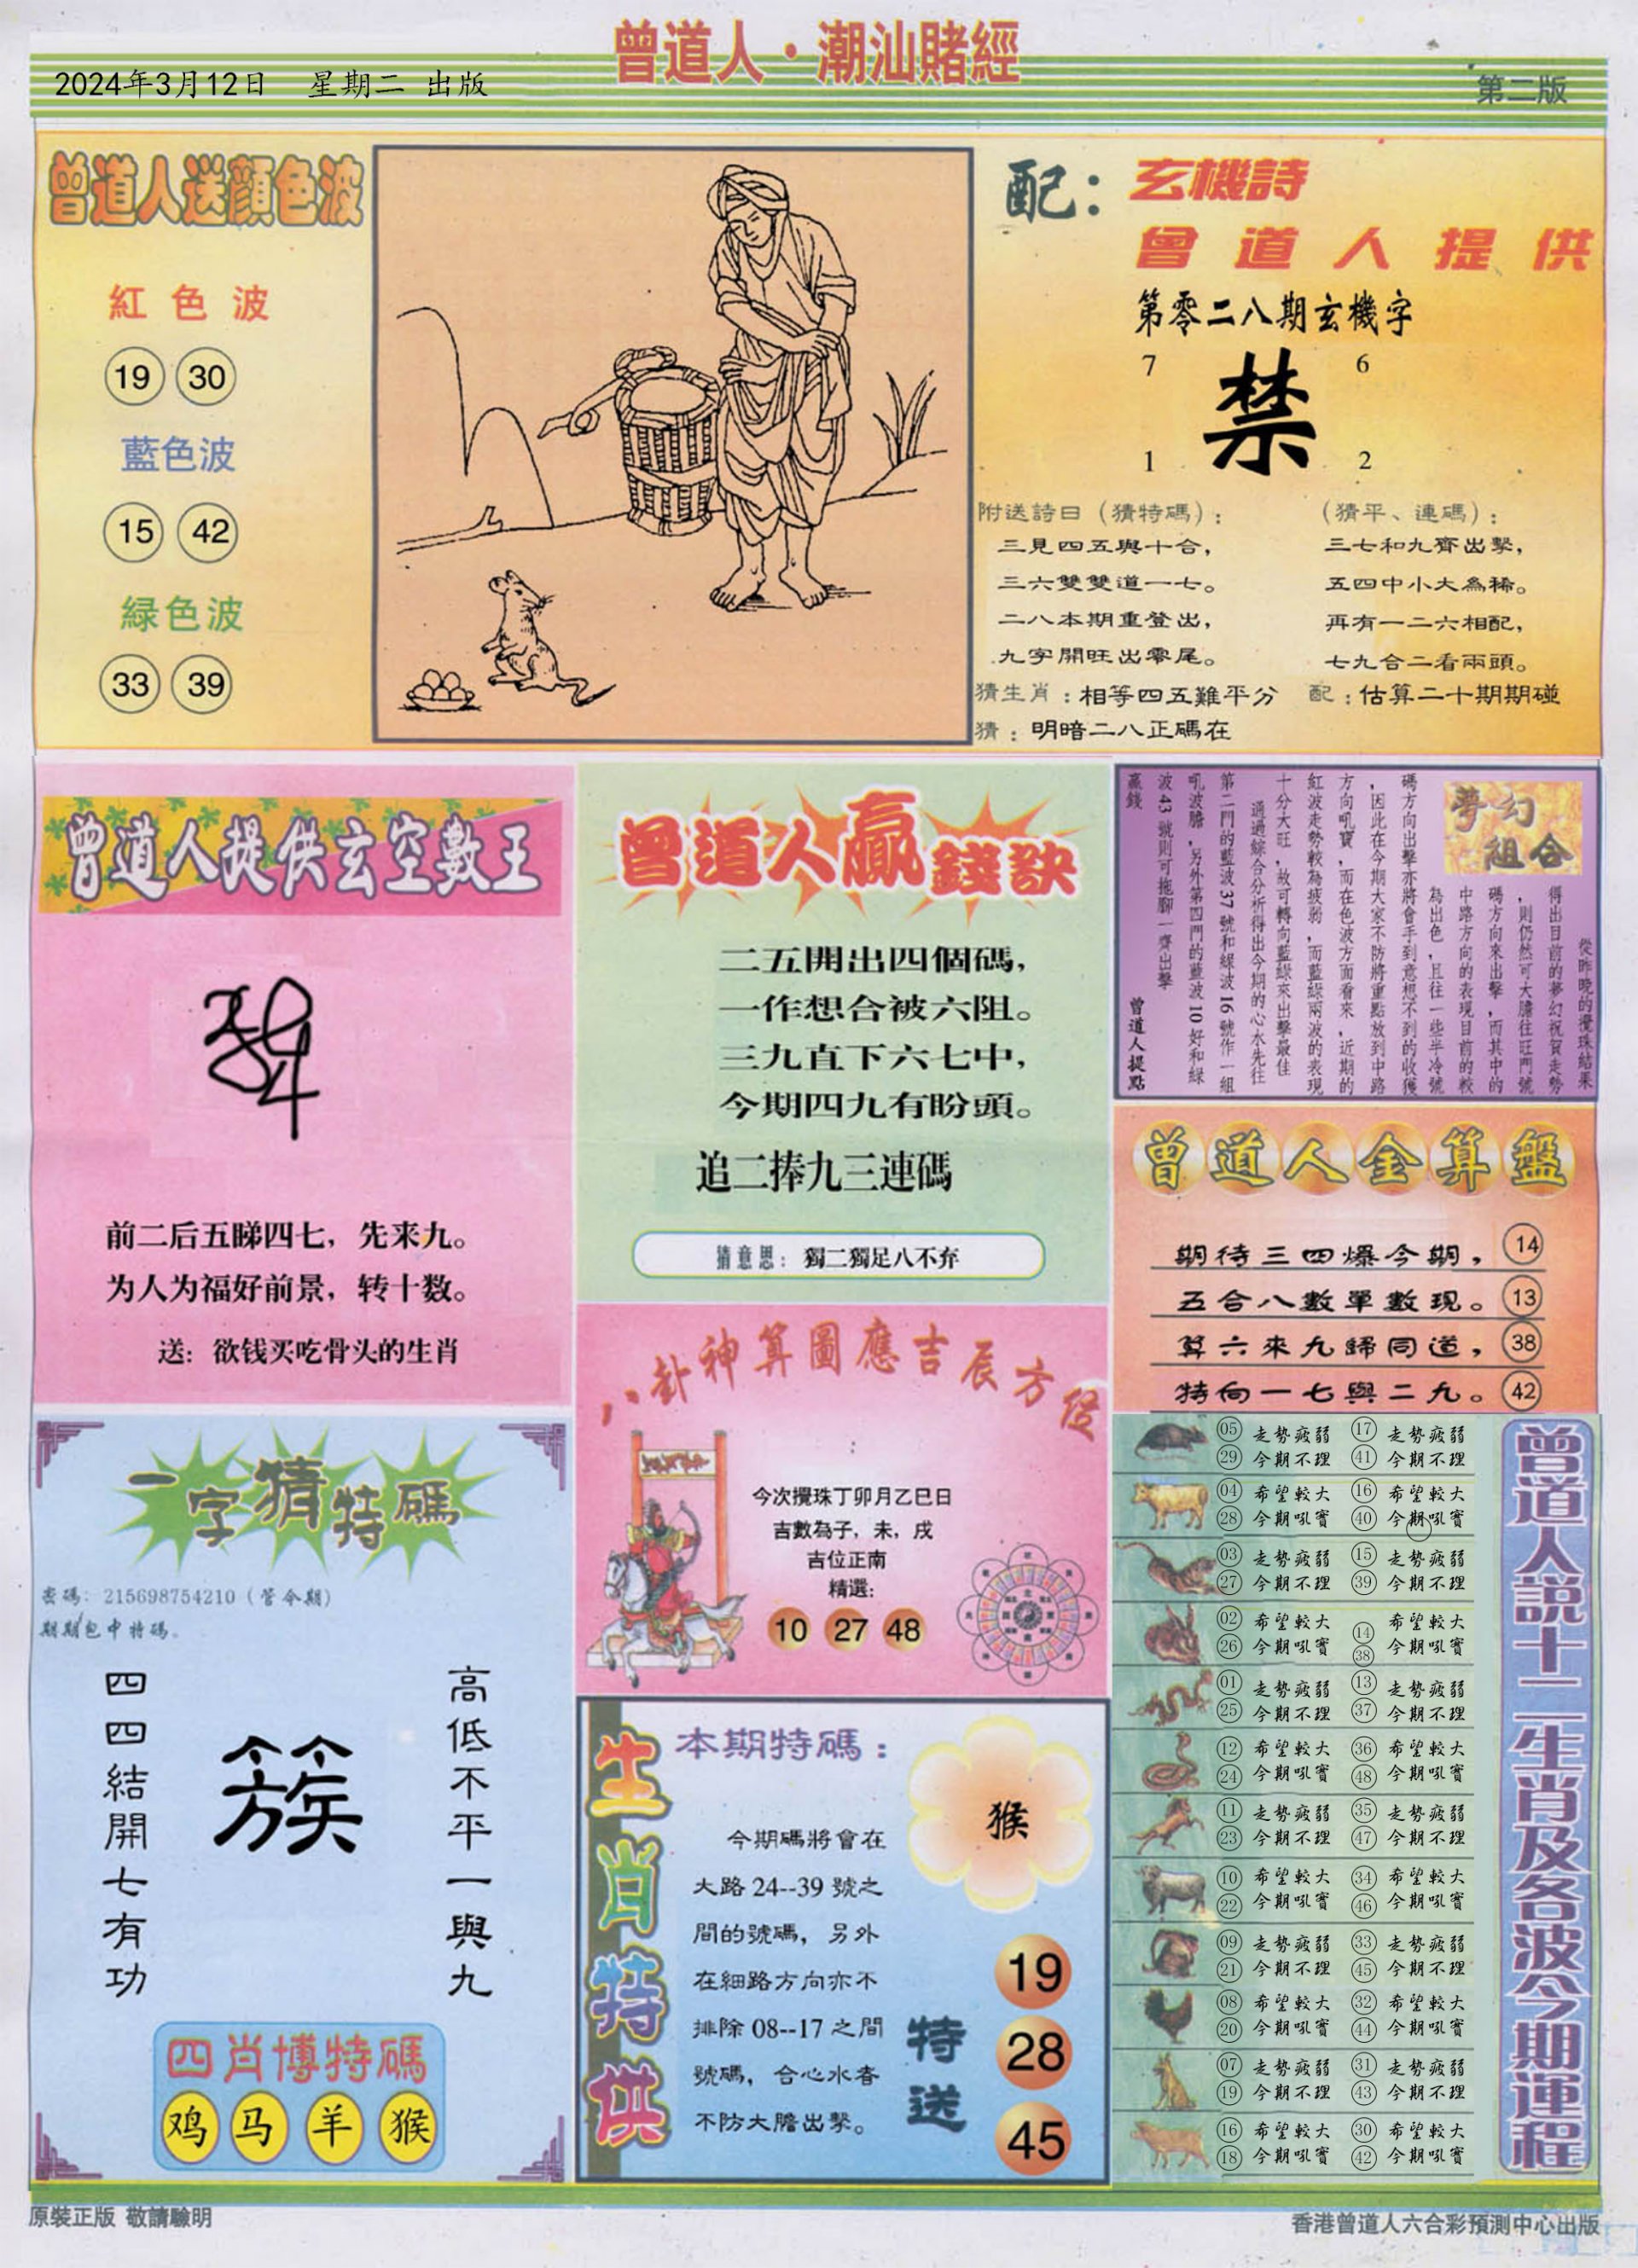 曾道人·潮汕賭經
2024年3月12日 星期二 出版
第二版
曾道人送顔色波
紅色波
19 30
藍色波
15 42
緑色波
33 39
配：
玄機詩
曾道人提供
第零二八期玄機字
7 6
禁
1 2
附送詩日（猜特碼）：
三見四五與十合，
三六雙雙道一七。
二八本期重登出，
九字開旺出零尾。
（猜平、連碼）：
三七和九齊出擊，
五四中小大為稀。
再有一二六相配，
七九合二看兩頭。
猜生肖：相等四五難平分
配：估算二十期期碰
猜：明暗二八正碼在
曾道人提供玄空數王
前二后五睇四七，先来九。
为人为福好前景，转十数。
送：欲钱买吃骨头的生肖
曾道人贏錢訣
二五開出四個碼，
一作想合被六阻。
三九直下六七中，
今期四九有盼頭。
追二捧九三連碼
猜意思：獨二獨足八不弃
夢幻
組合
從昨晚的攪珠結果
得出目前的夢幻祝賀走勢
，則仍然可大膽往旺門號
碼方向來出擊，而其中的
中路方向的表現目前的較
為出色，且往一些半冷號
碼方向出擊亦將會手到意想不到的收獲
，因此在今期大家不防將重點放到中路
方向吼寶，而在色波方面看來，近期的
紅波走勢較為疲弱，而藍綠兩波的表現
十分大旺，故可轉向藍綠來出擊最佳
通過綜合分析得出今期的心水先往
第二門的藍波37號和綠波16號作一組
吼波膽，另外第四門的藍波10好和綠
波43號則可拖腳一齊出擊
贏錢
曾道人提點
曾道人金算盤
期待三四爆今期， 14
五合八數單數現。 13
算六來九歸同道， 38
特向一七與二九。 42
一字猜特碼
密碼：215698754210（管令期）
期期包中特碼。
高低不平一與九
簇
四四結開七有功
四肖博特碼
鸡 马 羊 猴
八卦神算圖應吉辰方位
今次攪珠丁卯月乙巳日
吉數為子，未，戌
吉位正南
精選：
10 27 48
生肖特供
本期特碼：
猴
今期碼將會在
大路24--39號之
間的號碼，另外
在細路方向亦不
排除08--17之間
號碼，合心水者
不防大膽出擊。
特送
19
28
45
曾道人説十二生肖及各波今期運程
05 走势疲弱 17 走势疲弱
29 今期不理 41 今期不理
04 希望較大 16 希望較大
28 今期吼寳 40 今期吼寳
03 走势疲弱 15 走势疲弱
27 今期不理 39 今期不理
02 希望較大 14 希望較大
26 今期吼寳 38 今期吼寳
01 走势疲弱 13 走势疲弱
25 今期不理 37 今期不理
12 希望較大 36 希望較大
24 今期吼寳 48 今期吼寳
11 走势疲弱 35 走势疲弱
23 今期不理 47 今期不理
10 希望較大 34 希望較大
22 今期吼寳 46 今期吼寳
09 走势疲弱 33 走势疲弱
21 今期不理 45 今期不理
08 希望較大 32 希望較大
20 今期吼寳 44 今期吼寳
07 走势疲弱 31 走势疲弱
19 今期不理 43 今期不理
16 希望較大 30 希望較大
18 今期吼寳 42 今期吼寳
原裝正版 敬請驗明
香港曾道人六合彩預測中心出版